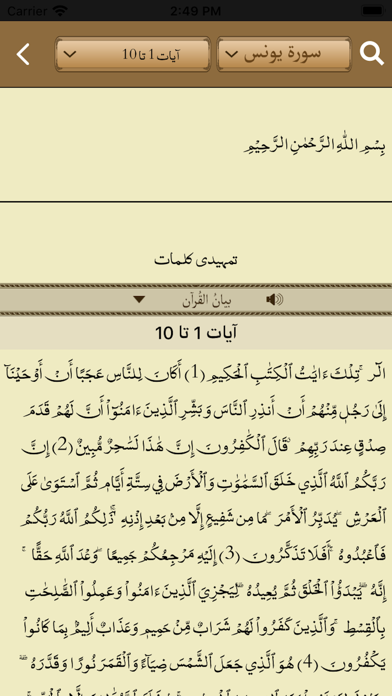 Carrier 2:49 PM
سورۃ یونس آیات 1 تا 10
بِسْمِ اللّٰهِ الرَّحْمٰنِ الرَّحِيْمِ
تمہیدی کلمات
بیانُ القُرآن
آیات 1 تا 10
الٓر ۚ تِلْكَ ءَايَٰتُ ٱلْكِتَٰبِ ٱلْحَكِيمِ (1) أَكَانَ لِلنَّاسِ عَجَبًا أَنْ أَوْحَيْنَآ
إِلَىٰ رَجُلٍ مِّنْهُمْ أَنْ أَنذِرِ ٱلنَّاسَ وَبَشِّرِ ٱلَّذِينَ ءَامَنُوٓا۟ أَنَّ لَهُمْ قَدَمَ
صِدْقٍ عِندَ رَبِّهِمْ ۗ قَالَ ٱلْكَٰفِرُونَ إِنَّ هَٰذَا لَسَٰحِرٌ مُّبِينٌ (2) إِنَّ
رَبَّكُمُ ٱللَّهُ ٱلَّذِي خَلَقَ ٱلسَّمَٰوَٰتِ وَٱلْأَرْضَ فِي سِتَّةِ أَيَّامٍ ثُمَّ ٱسْتَوَىٰ عَلَى
ٱلْعَرْشِ ۖ يُدَبِّرُ ٱلْأَمْرَ ۖ مَا مِن شَفِيعٍ إِلَّا مِنۢ بَعْدِ إِذْنِهِۦ ۚ ذَٰلِكُمُ ٱللَّهُ رَبُّكُمْ
فَٱعْبُدُوهُ ۚ أَفَلَا تَذَكَّرُونَ (3) إِلَيْهِ مَرْجِعُكُمْ جَمِيعًا ۖ وَعْدَ ٱللَّهِ حَقًّا ۚ
إِنَّهُۥ يَبْدَؤُا۟ ٱلْخَلْقَ ثُمَّ يُعِيدُهُۥ لِيَجْزِيَ ٱلَّذِينَ ءَامَنُوا۟ وَعَمِلُوا۟ ٱلصَّٰلِحَٰتِ
بِٱلْقِسْطِ ۚ وَٱلَّذِينَ كَفَرُوا۟ لَهُمْ شَرَابٌ مِّنْ حَمِيمٍ وَعَذَابٌ أَلِيمٌۢ بِمَا كَانُوا۟
يَكْفُرُونَ (4) هُوَ ٱلَّذِي جَعَلَ ٱلشَّمْسَ ضِيَآءً وَٱلْقَمَرَ نُورًا وَقَدَّرَهُۥ